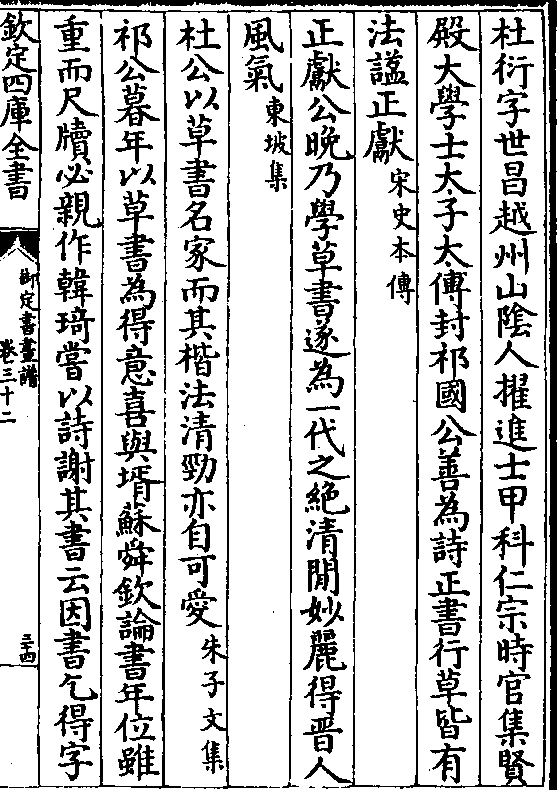 杜衍字世昌越州山陰人擢進士甲科仁宗時官集賢
殿大學士太子太傅封祁國公善為詩正書行草皆有
法諡正獻宋史本傳
正獻公晚乃學草書遂為一代之絶清閒妙麗得晉人
風氣東坡集
杜公以草書名家而其楷法清勁亦自可愛朱子文集
祁公暮年以草書為得意喜與壻蘇舜欽論書年位雖
重而尺牘必親作韓琦嘗以詩謝其書云因書乞得字
欽定四庫全書
御定書畫譜
卷三十二
三四